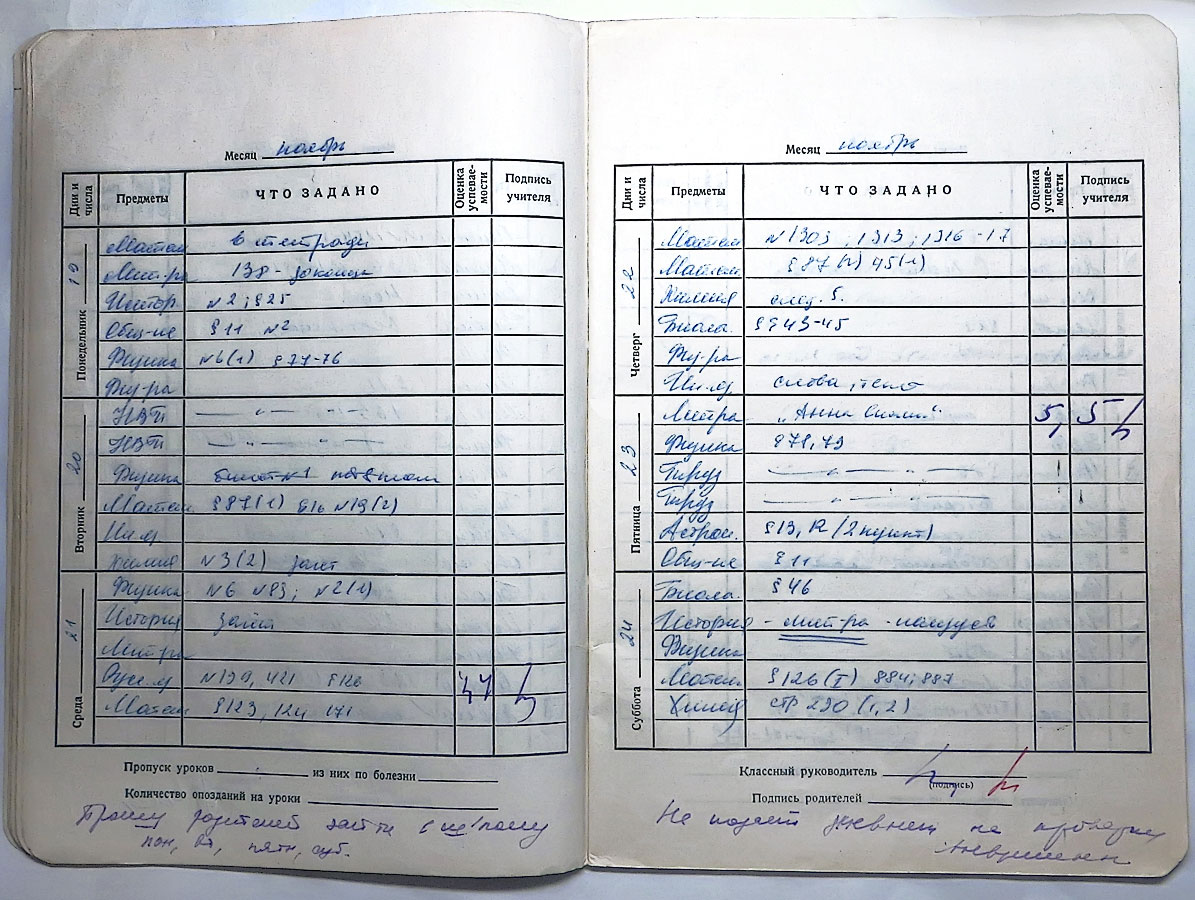 Месяц ноябрь
Дни и числа Предметы ЧТО ЗАДАНО Оценка успевае-мости Подпись учителя
Понедельник 19
Матем в тетради
Лит-ра 138 - законч
Истор. №2; §25
Общ-ие §11 №2
Физика №6(1) §77-76
Физ-ра
Вторник 20
НВП — " — " —
НВП — " — " —
Физика
Матем §87(1) №19(2)
Ин.яз
Химия №3(2)
Среда 21
Физика №6 №83; №2(1)
История
Лит-ра
Рус.яз №139, 421 §126
Матем §123, 124 171
Пропуск уроков из них по болезни
Количество опозданий на уроки
Прошу родителей зайти в школу
пон, вт, пятн, суб.
Месяц ноябрь
Дни и числа Предметы ЧТО ЗАДАНО Оценка успевае-мости Подпись учителя
Четверг 22
Матем №1303; 1313; 1316-17
Матем §87(2) 45(1)
Химия след. §.
Биоло. §§43-45
Физ-ра
Ин.яз слова, текст
Пятница 23
Лит-ра „Анна 5, 5
Физика §78,79
Труд — " — " —
Труд — " — " —
Астрон. §13, 12 (2 пункт)
Общ-ие §11
Суббота 24
Биоло. §46
История - лит-ра - наизусть
Физика
Матем §126(I) 884; 887
Химия стр 290 (1,2)
Классный руководитель
(подпись)
Подпись родителей
Не подает дневник на проверку